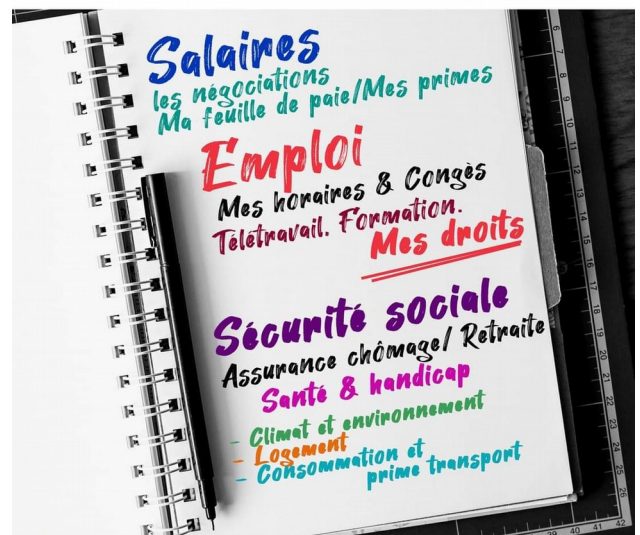 Salaires
les négociations
Ma feuille de paie/Mes primes
Emploi
Mes horaires & Congès
Télétravail. Formation.
Mes droits
Sécurité sociale
Assurance chômage/ Retraite
Santé & handicap
- Climat et environnement
- Logement
- Consommation et
prime transport
6
7
8
9
10
11
12
13
14
15
16
17
18
19
20
21
22
23
24
25
26
39
40
41
42